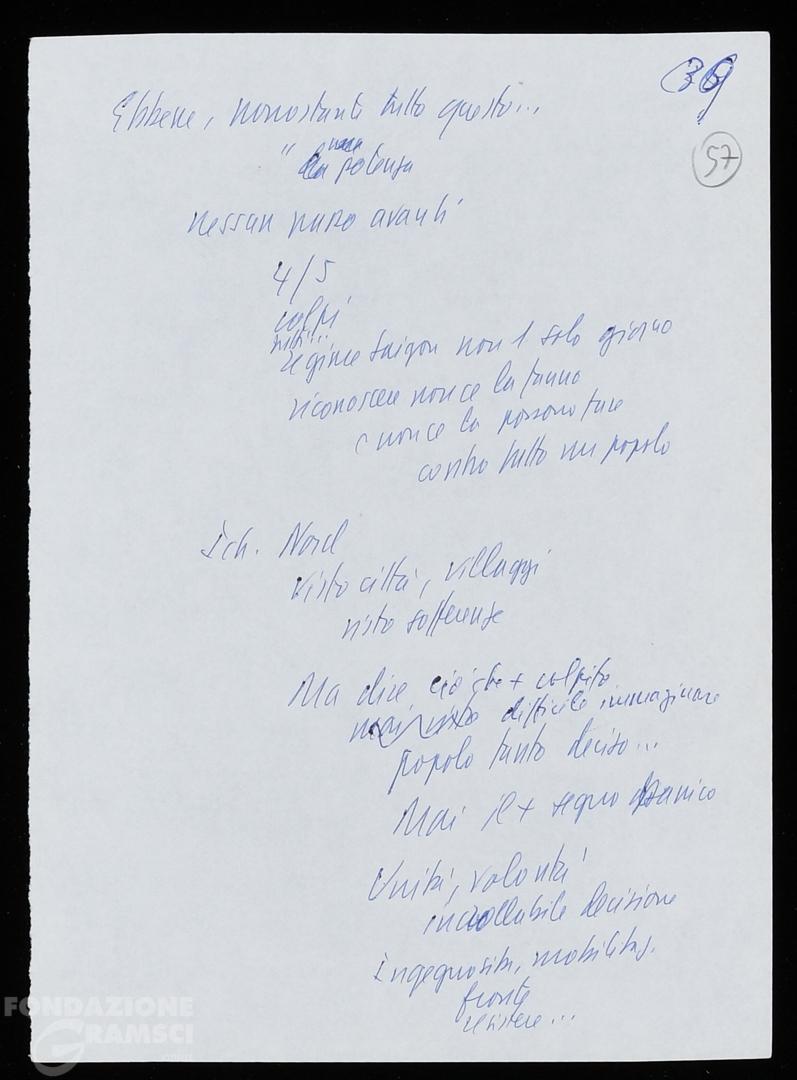 39
57
Ebbene, nonostante tutto questo...
" una potenza
nessun passo avanti
4/5
colpi
regime Saigon non 1 solo giorno
riconoscere non ce la fanno
e non ce la possono fare
contro tutto un popolo
Sch. Nord
visto città, villaggi
visto sofferenze
Ma dice ciò che + colpito
mai visto difficile immaginare
popolo tanto deciso...
Mai il + segno panico
Unità, volontà
incrollabile decisione
Ingegnosità, mobilitaz.
fronte
resistere...
FONDAZIONE
GRAMSCI